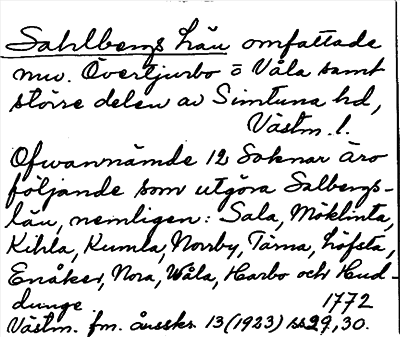 Sahlbergs län omfattade
nuv. Övertjurbo o Våla samt
större delen av Simtuna hd,
Västm. l.
Ofwannämde 12 Soknar äro
följande som utgöra Salbergs-
län, nemligen: Sala, Möklinta,
Kihla, Kumla, Norrby, Tärna, Löfsta,
Enåker, Nora, Wåla, Harbo och Hud-
dunge 1772
Västm. fm. årsskr. 13 (1923) ss 29, 30.